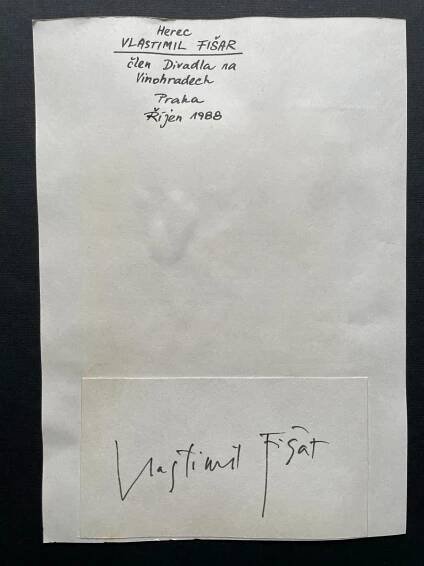 Herec
VLASTIMIL FIŠAR
člen Divadla na
Vinohradech
Praha
Říjen 1988
Vlastimil Fišar